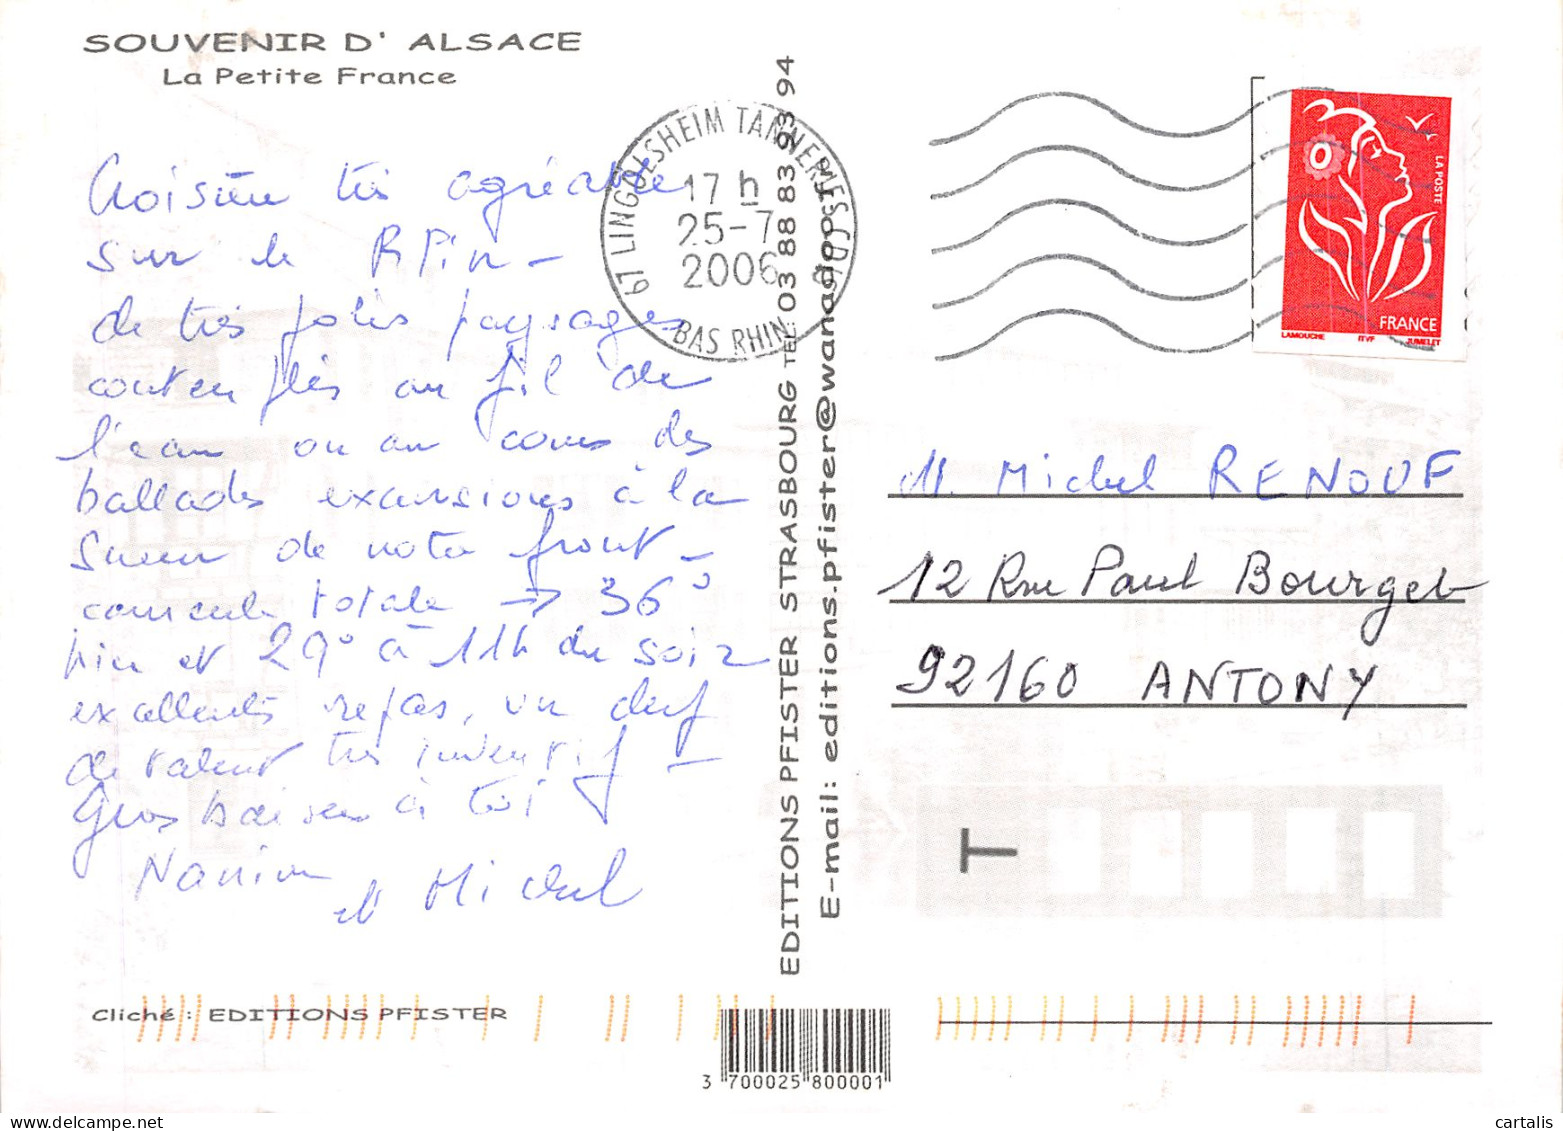 SOUVENIR D' ALSACE
La Petite France
Croisière très agréable
sur le Rhin -
de très jolis paysages
contemplés au fil de
l'eau ou au cours des
ballades excursions à la
sueur de notre front -
canicule totale → 36°
hier et 29° à 11h du soir
excellents repas, un chef
de talent très inventif -
Gros baisers à toi
et Michel
Cliché : EDITIONS PFISTER
67 LINGOLSHEIM TANNERIES CDIS
17 h
25-7
2006
BAS RHIN
EDITIONS PFISTER STRASBOURG TEL. 03 88 83 93 94
E-mail: editions.pfister@wanadoo.fr
3 700025 800001
LA POSTE
FRANCE
LAMOUCHE ITVF JUMELET
M. Michel RENOUF
12 Rue Paul Bourget
92160 ANTONY
T
cartalis